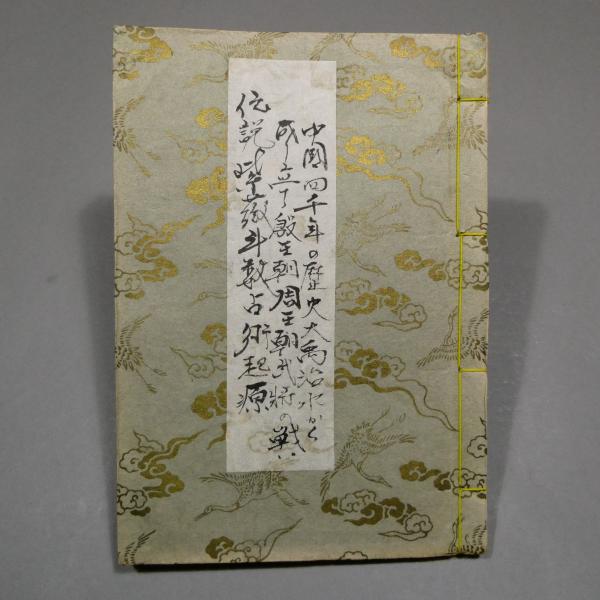 中国四千年の歴史大禹治水から
成立了殷王朝周王朝武将の戦い
伝説紫薇斗数占術起源